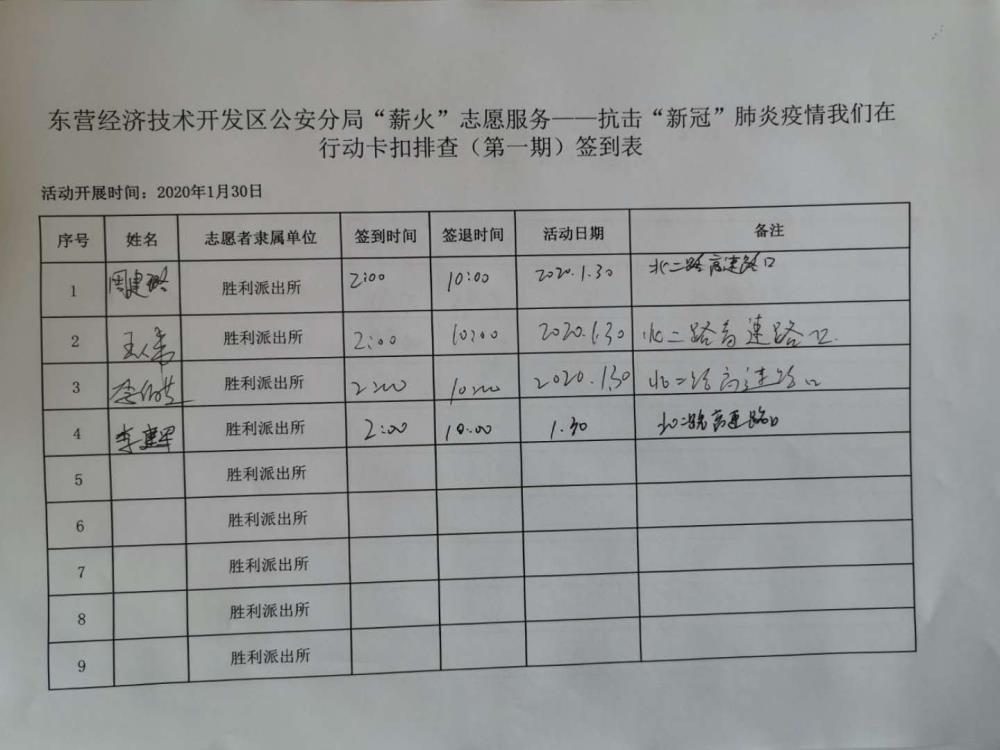 东营经济技术开发区公安分局“薪火”志愿服务——抗击“新冠”肺炎疫情我们在
行动卡扣排查（第一期）签到表
活动开展时间：2020年1月30日
序号 姓名 志愿者隶属单位 签到时间 签退时间 活动日期 备注
1 周建 胜利派出所 2:00 10:00 2020.1.30 北二路高速路口
2 胜利派出所 2:00 10:00 2020.1.30 北二路高速路口
3 胜利派出所 2:00 10:00 2020.1.30 北二路高速路口
4 李建军 胜利派出所 2:00 10:00 1.30 北二路高速路口
5 胜利派出所
6 胜利派出所
7 胜利派出所
8 胜利派出所
9 胜利派出所